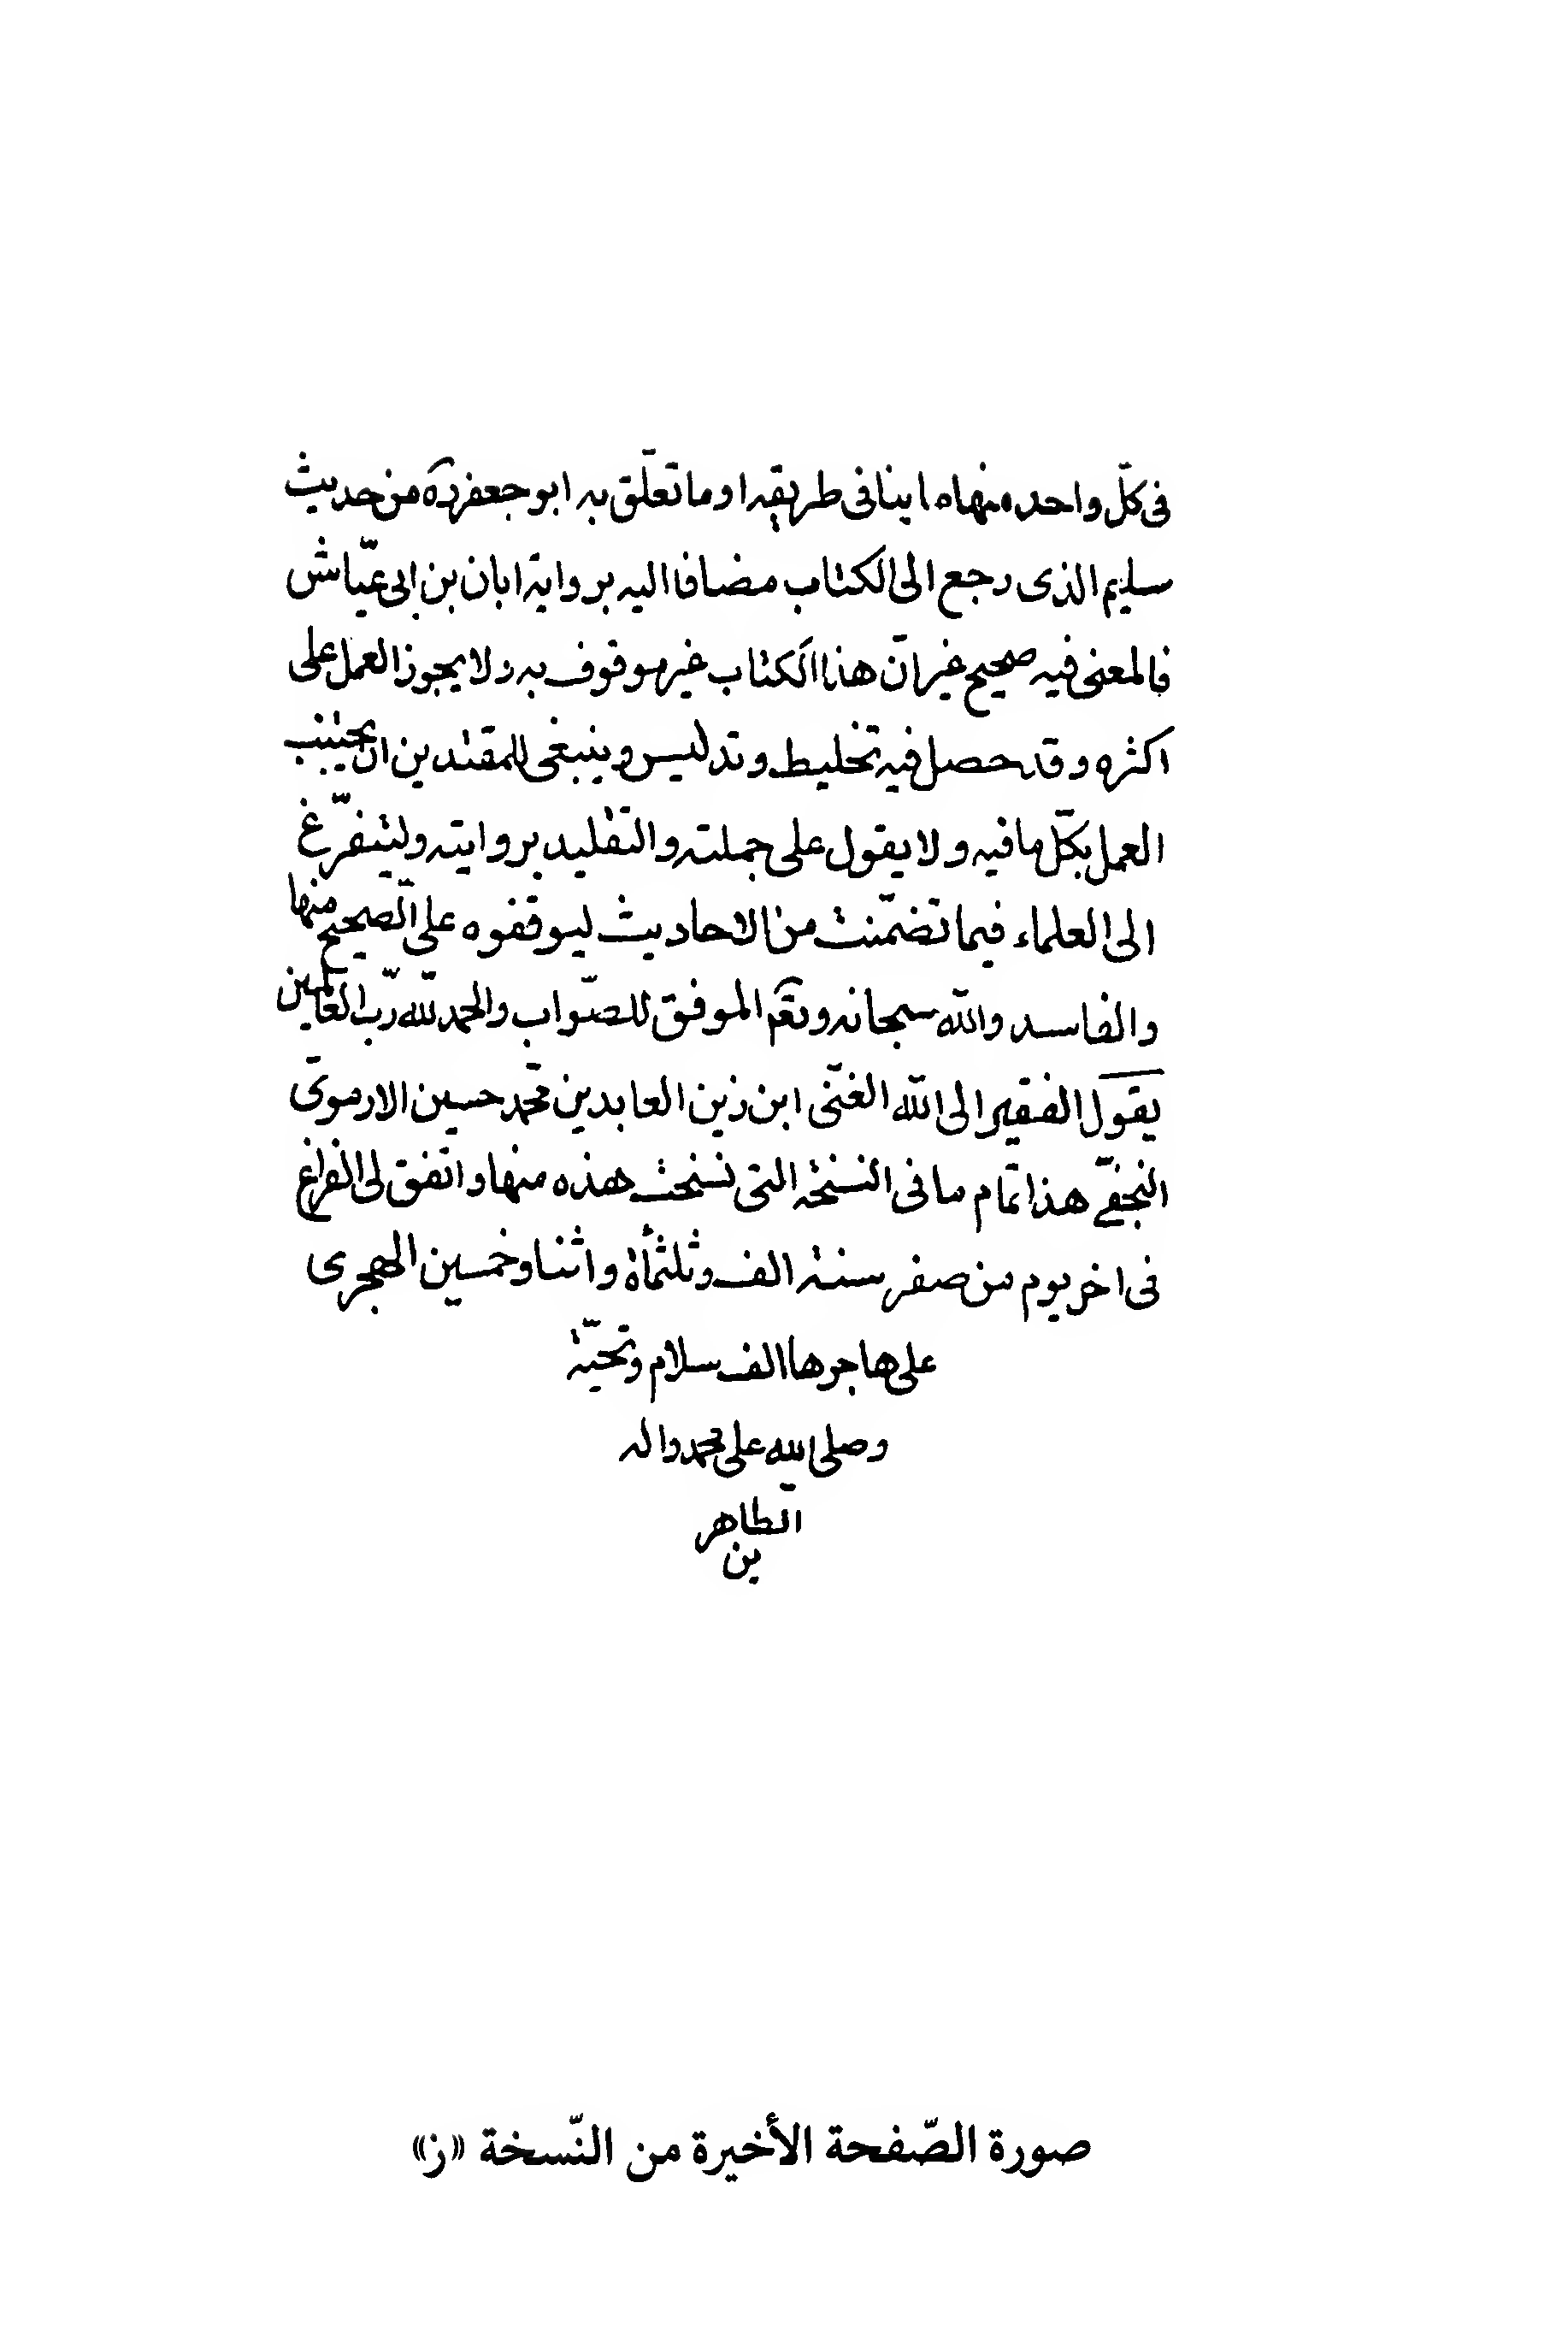 فى كلّ واحده منها ما ينافى طريقه او ما تعلّق به ابو جعفر ره من حديث
سليم الذى رجع الى الكتاب مضافا اليه برواية ابان بن ابى عيّاش
فالمعنى فيه صحيح غير انّ هذا الكتاب غير موقوف به ولا يجوز العمل على
اكثره وقد حصل فيه تخليط وتدليس وينبغى للمقتدين ان يجتنب
العمل بكلّ ما فيه ولا يقول على جملته والتقليد بروايته وليتفرّغ
الى العلماء فيما تضمّنت من الاحاديث ليوقفوه على الصّحيح منها
والفاسد والله سبحانه وتعم الموفق للصّواب والحمد لله ربّ العالمين
يقول الفقير الى الله الغنّى ابن زين العابدين محمد حسين الارموىّ
النجفىّ هذا تمام ما فى النسخة التى نسخت هذه منها واتفق لى الفراغ
فى اخر يوم من صفر سنة الف وثلثمأة واثنا وخمسين الهجرى
على هاجرها الف سلام وتحيّة
وصلى الله على محمد واله
الطاهر
ين
صورة الصّفحة الأخيرة من النّسخة «ز»